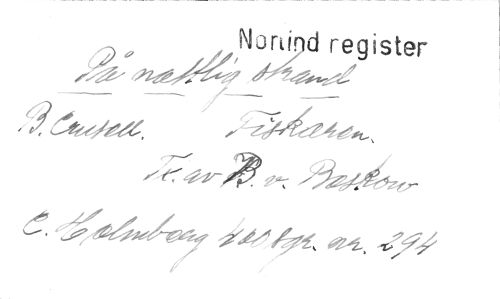 Norind register
På nattlig strand
B. Crusell. Fiskaren.
Tx. av B. v. Beskow
C. Holmberg 400 sgr. nr. 294